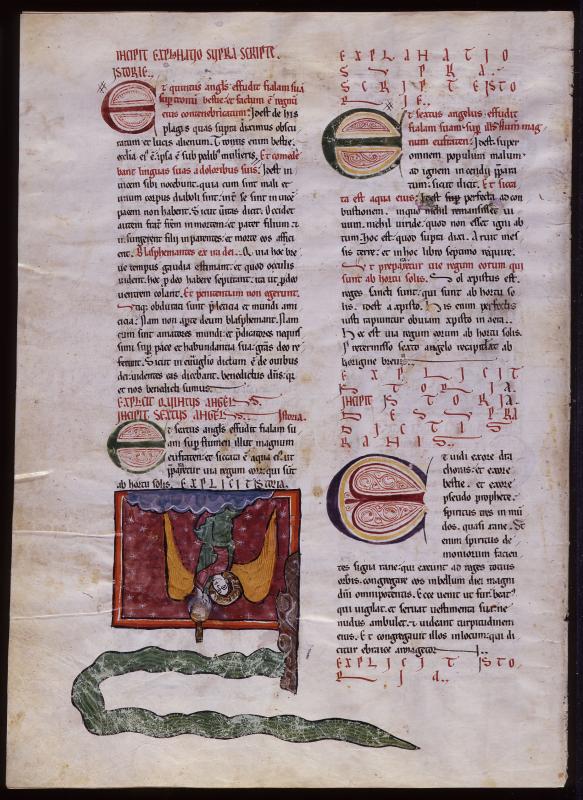 INCIPIT EXPLANATIO SUPRA SCRIPTE
ISTORIE..
Et quintus angls effudit fialam sua
sup tronū bestie et factum ē regnū
eius contenebricatum: hoest de his
plagis quas supta diximus obscu
ratum et lucis alienum. Tronus enim bestie,
est sub pedibus mulieris. Et comede
bant linguas suas a doloribus suis: hoest in
uicem sibi nocebunt. quia cum sint mali et
unum corpus diaboli sunt. inter se sunt in uice
pacem non habent. Sicut dicit. Occidet
autem frat frem in mortem: et pater filium et
insurgent filii in parentes. et morte eos affici
ent. Blasphemantes ex ira dei. Quia hoc bre
ue tempus gaudia estimant: et quod occulis
uident. hoc p deo habere se putant. ita ut p deo
uentrem colant. Et penitentiam non egerunt.
Utiq; obdurati sunt et mundi ami
citia. Nam non apte deum blasphemant. Nam
cum sint amatores mundi et
sup pace et habundantia sua gras deo re
ferunt. Sicut in euglio dictum ē de ouibus
uidentes eas dicebant. benedictus dns. q;
et nos benedicti sumus.
EXPLICIT QUINTUS ANGELUS.
INCIPIT SEXTUS ANGELUS. Istoria.
Et sextus angls effudit fialam su
am sup flumen illut magnum
eufraten: et siccata ē aqua ei. ut
pparetur uia regum eorum qui sūt
ab hortu solis. EXPLICIT ISTORIA.
EXPLANATIO
SUPRA
SCRIPTE ISTO
RIE.
Et sextus angelus effudit
fialam suam sup illut flum mag
num eufraten: hoest super
omnem populum malum
ad ignem incendii para
tum: sicut dicit. Et sicca
ta est aqua eius: hoest perfecta ad con
bustionem. in quo nichil remansisset ui
uum. nichil uiride quod non esset igni ab
tum. hoc est quod supra dixi. Aruit mes
sis terre: et in hoc libro septimo require.
Ut preparetur uie regum eorum qui
sunt ab hortu solis. Sol xpistus est.
reges sancti sunt. qui sunt ab hortu so
lis. idest a xpisto. His enim perfectis
iusti rapiuntur obuiam xpisto in aera.
Hec est uia regum eorum ab hortu solis.
Pretermisso sexto angelo recapitulat ab
horigine breui
EXPLICIT
ISTORIA.
INCIPIT ISTORIA
DE SUPRA
DICTIS
RANIS.
Et uidi exore dra
chonis: et exore
bestie. et exore
pseudo prophete.
spiritus tres in mū
dos. quasi rane. St
enim spiritus de
moniorum facien
tes signa rane: qui exeunt ad reges totius
orbis. congregare eos in bellum diei magni
dni omnipotentis. Ecce uenit ut fur. beat'
qui uigilat. et seruat uestimenta sua. ne
nudus ambulet. et uideant turpitudinem
eius. Et congregauit illos in locum: qui di
citur ebraice armagedon
EXPLICIT ISTO
RIA.